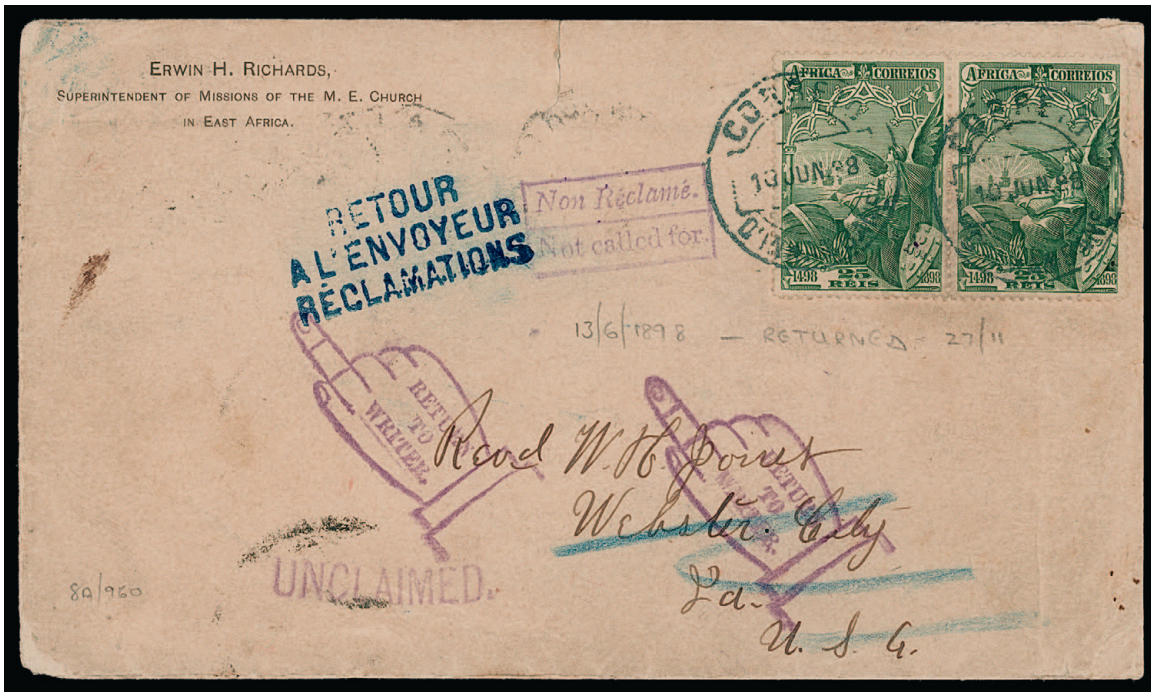 ERWIN H. RICHARDS,
SUPERINTENDENT OF MISSIONS OF THE M. E. CHURCH
IN EAST AFRICA.
AFRICA CORREIOS
1498 25 1898
RÉIS
AFRICA CORREIOS
1498 25 1898
RÉIS
10 JUN. 98
10 JUN. 98
RETOUR
A L'ENVOYEUR
RÉCLAMATIONS
Non Réclamé.
Not called for.
13/6/1898 — RETURNED - 27/11
RETURN
TO
WRITER.
RETURN
TO
WRITER.
Revd W. H.
Webster City
Ia.
U. S. A.
UNCLAIMED.
8A/960